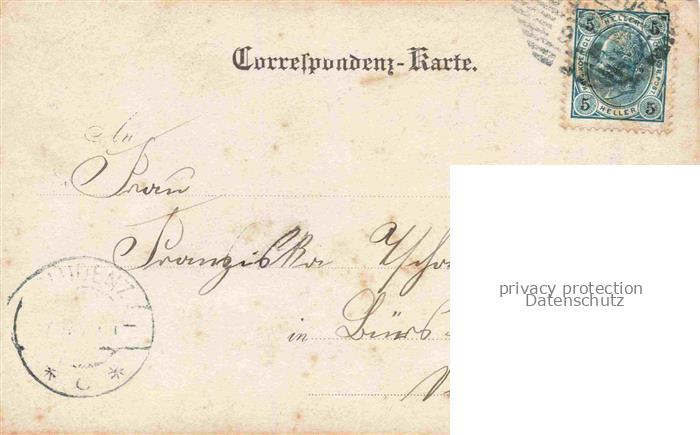 Correspondenz-Karte.
5 HELLER 5
5 HELLER 5
An
Frau
Franziska Tscho
in Bürs
UDENZ
C
privacy protection
Datenschutz